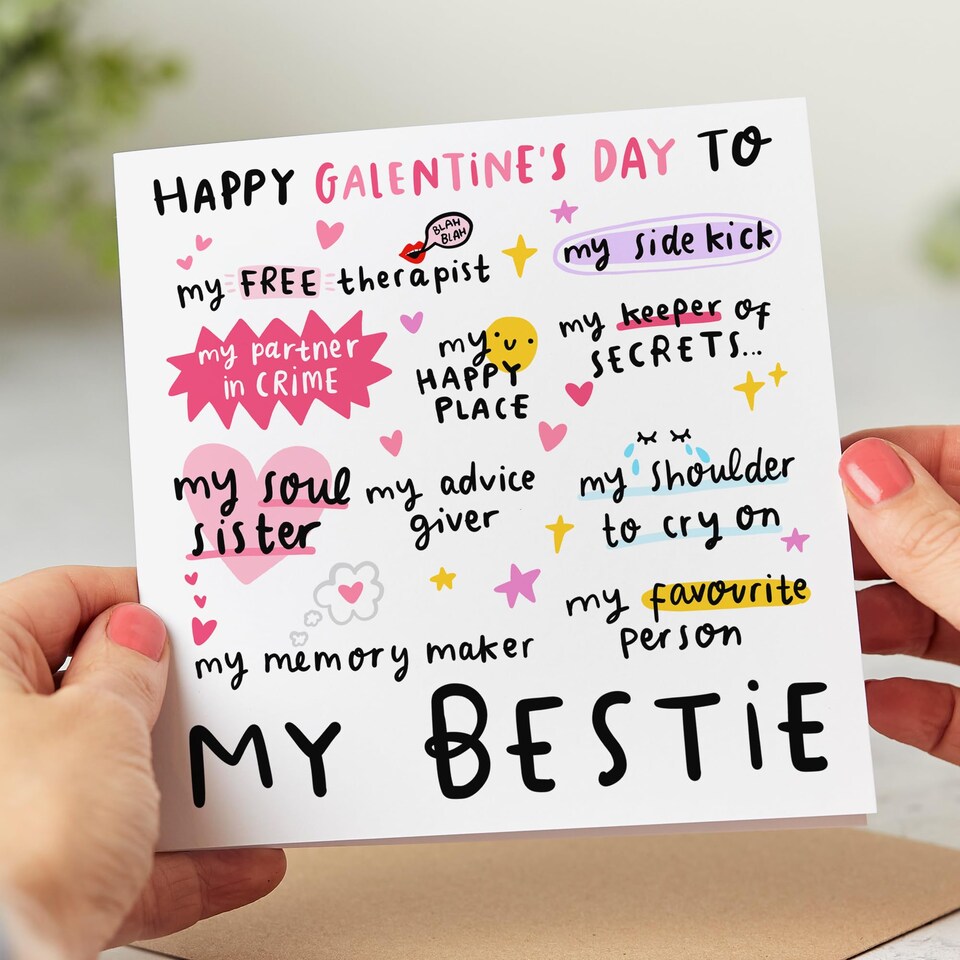 HAPPY GALENTINE'S DAY TO
BLAH
BLAH
my FREE therapist
my side kick
my partner
in CRIME
my
HAPPY
PLACE
my keeper of
SECRETS...
my soul
sister
my advice
giver
my shoulder
to cry on
my memory maker
my favourite
person
MY BESTIE